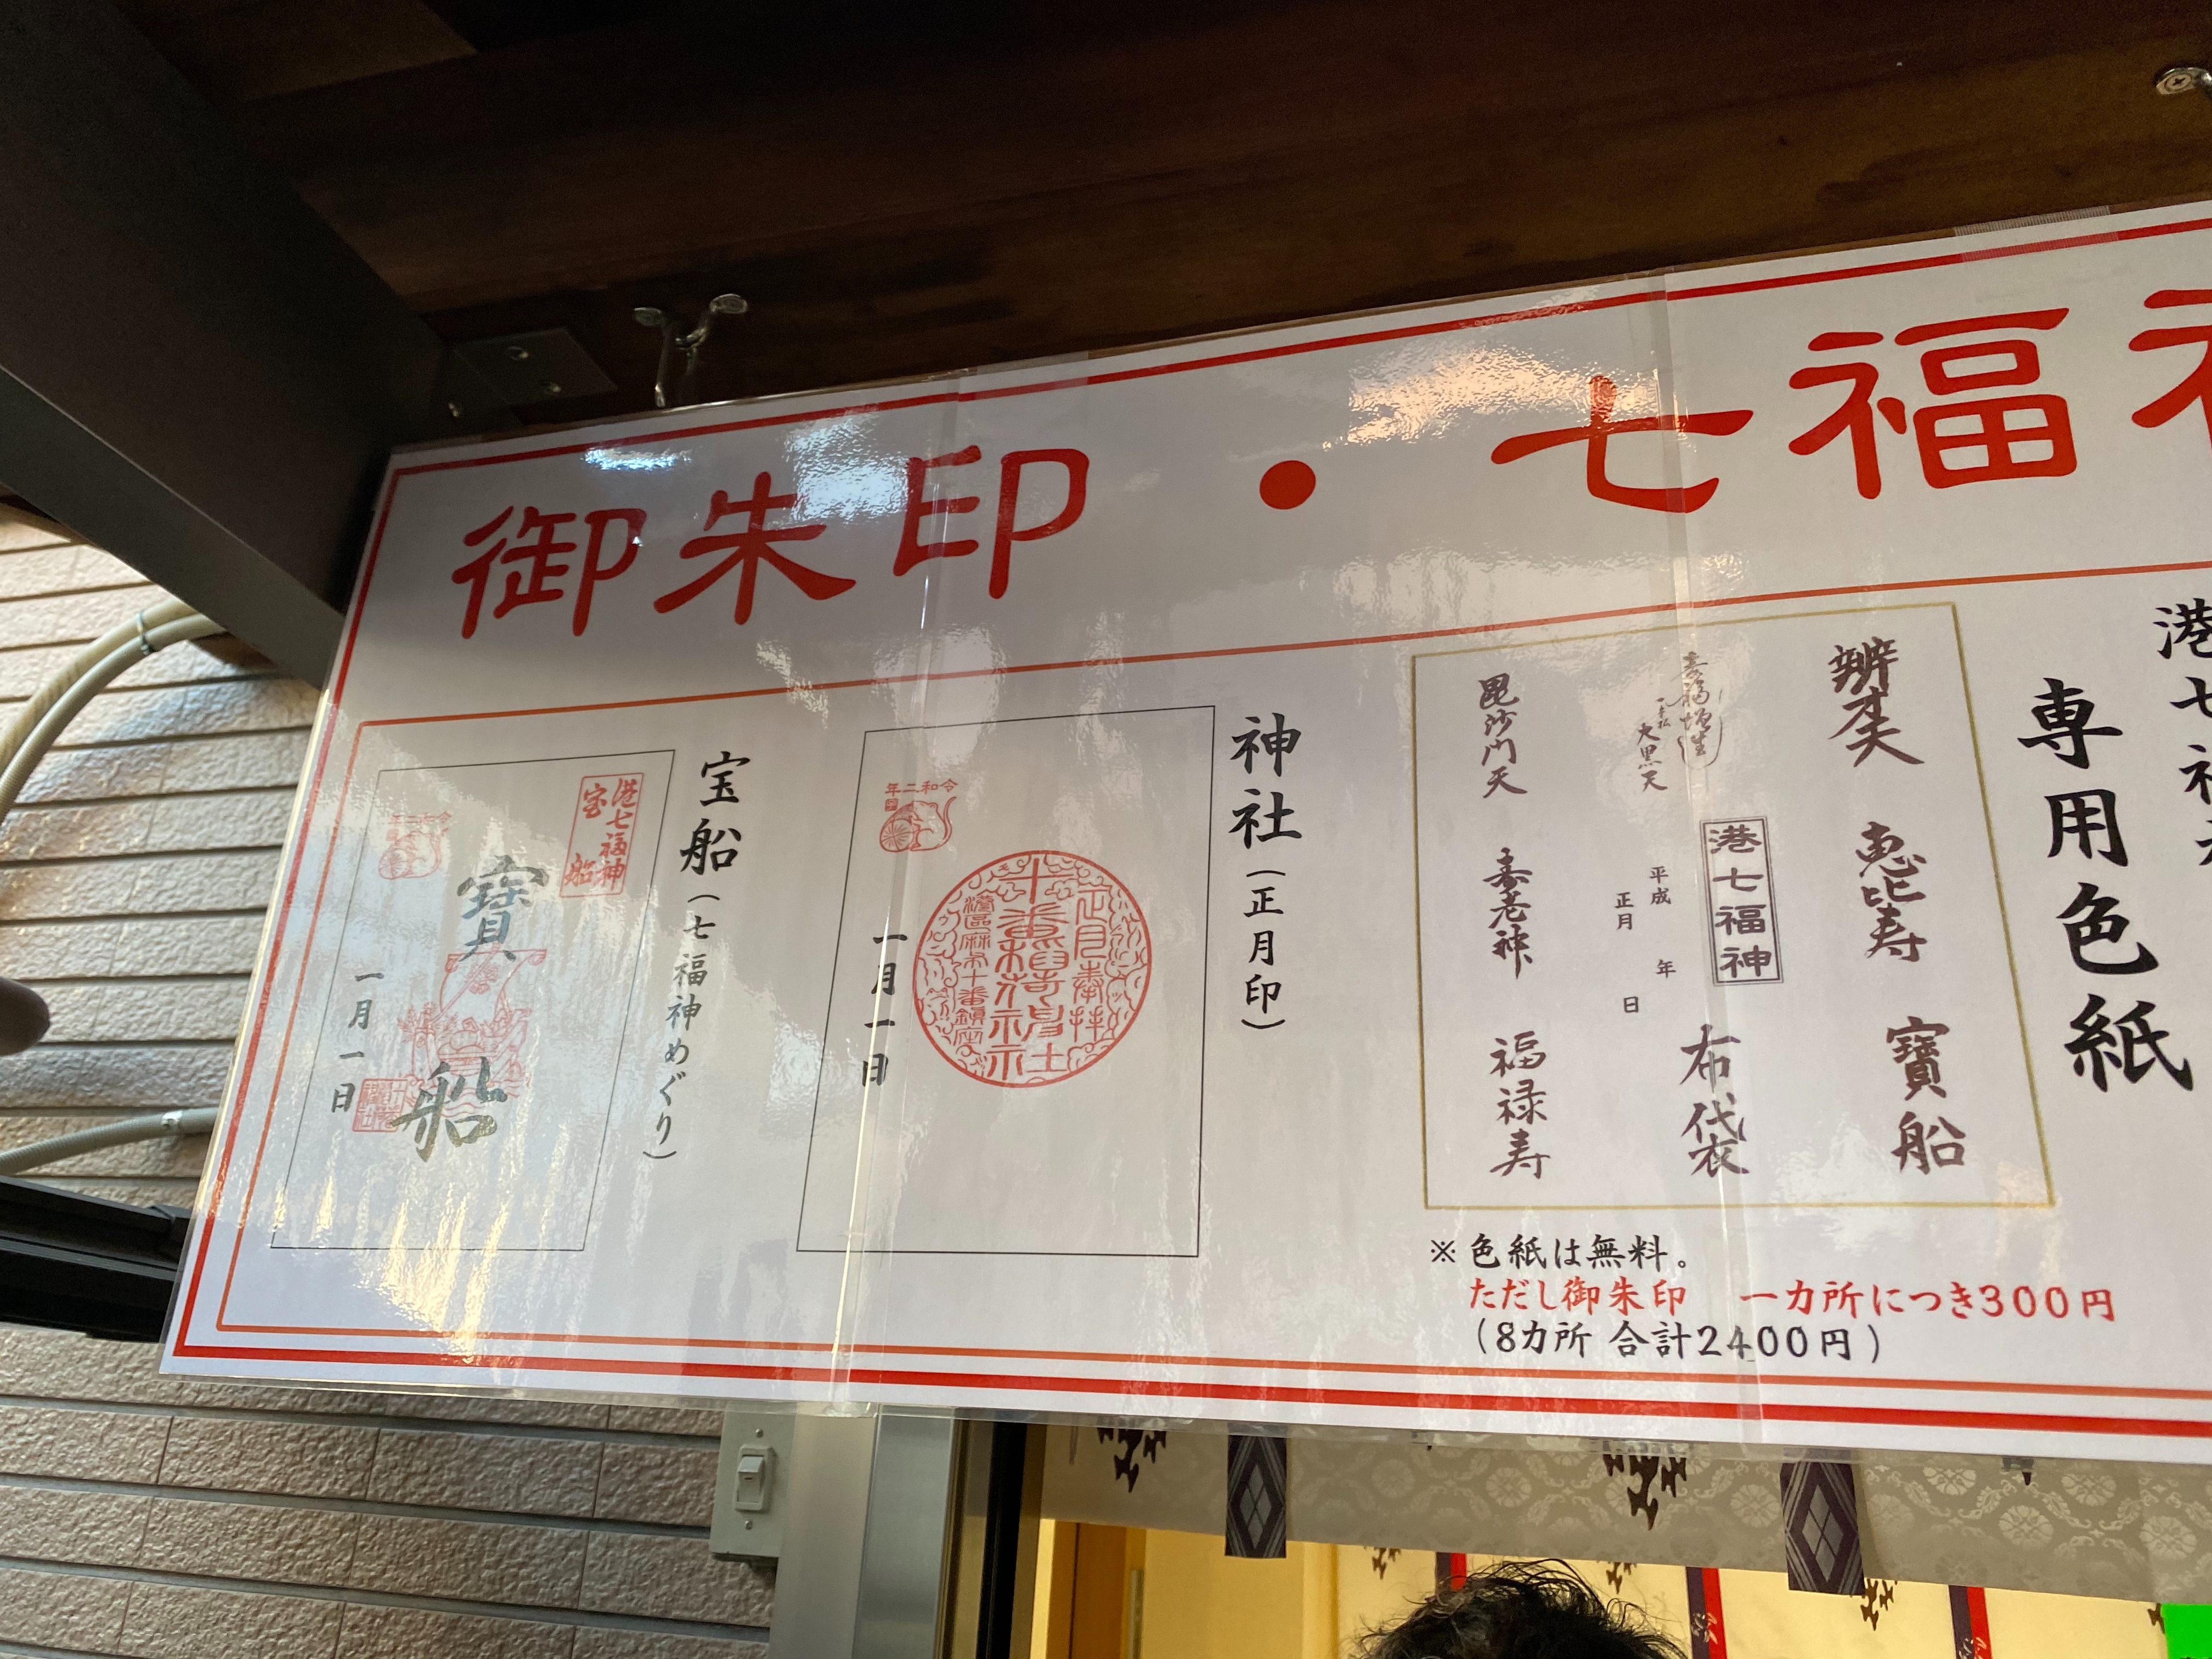 御朱印・七福
港七福
専用色紙
辨財天
恵比寿
寶船
寿福増生
大黒天
港七福神
平成 年
正月 日
布袋
毘沙門天
寿老神
福禄寿
※色紙は無料。
ただし御朱印 一カ所につき300円
(8カ所 合計2400円)
神社(正月印)
令和二年
正月奉拝
十番稲荷神社
港區麻布十番鎮座
一月一日
宝船(七福神めぐり)
港七福神
宝船
令和二年
寶船
一月一日